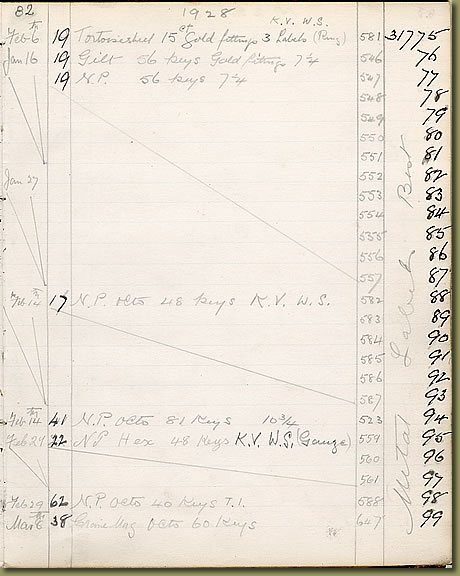 82 1928 K.V. W.S.
Feb 6th 19 Tortoiseshell 15ct Gold fittings 3 Labels 581 31775
Jan 16 19 Gilt 56 keys Gold fittings 7 1/4 546 76
19 N.P. 56 keys 7 1/4 547 77
548 78
549 79
550 80
551 81
Jan 27 552 82
553 83
554 84
555 85
556 86
557 87
Feb 14th 17 N.P. Octo 48 keys K.V. W.S. 582 88
583 89
584 90
585 91
586 92
587 93
Feb 14th 41 N.P. Octo 81 Keys 10 3/4 523 94
Feb 24 22 N.P Hex 48 Keys K.V. W.S. (Gauze) 559 95
560 96
561 97
Feb 29th 62 N.P. Octo 40 Keys T.I. 588 98
Mar 8th 38 Octo 60 Keys 647 99
Metal Labels Best